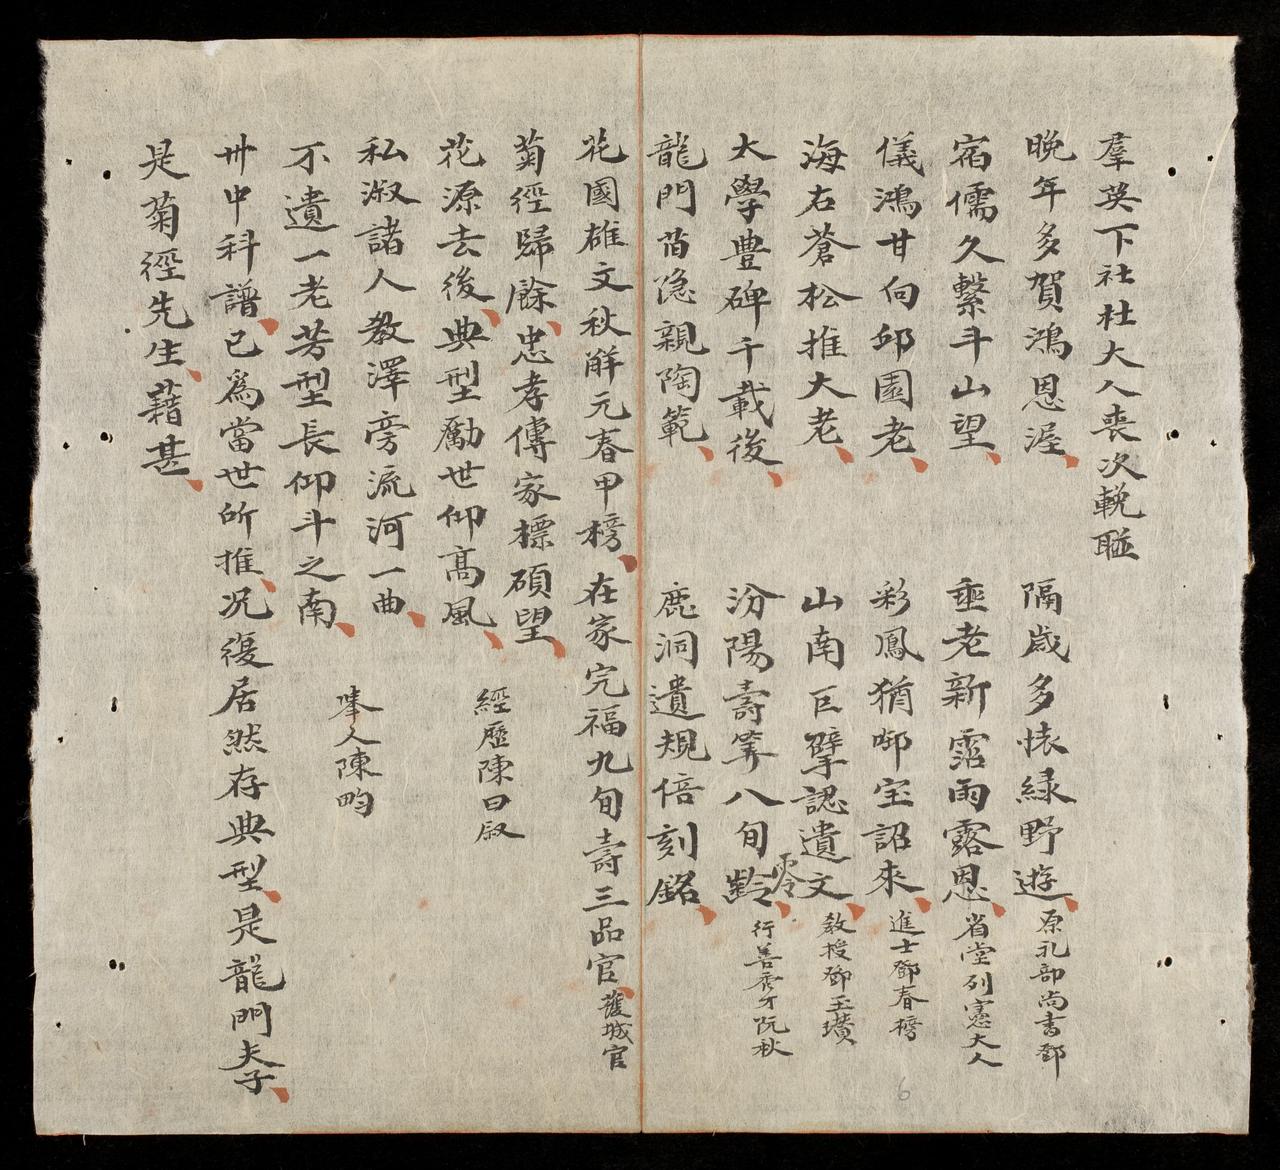 羣英下社杜大人喪次輓聯
晚年多賀鴻恩渥 隔歲多懐緑野遊 原礼部尚書鄧
宿儒久繫斗山望 垂老新霑雨露恩 省堂列憲大人
儀鴻甘向邱園老 彩鳳猶啣宝詔來 進士鄧春榜
海右蒼松推大老 山南巨擘認遺文 教授鄧玉瓚
大學豊碑千載後 汾陽壽筭八旬齡 零 行善秀才阮秋
龍門昔隐親陶範 鹿洞遺規倍刻銘
花國雄文秋觧元春甲榜 在家完福九旬壽三品官 護城官
菊徑歸餘忠孝傳家標碩望
花源去後典型勵世仰高風 經歷陳曰叙
私淑諸人教澤旁流河一曲
不遺一老芳型長仰斗之南 舉人陳畇
卅中科譜已爲當世所推况復居然存典型是龍門夫子
是菊徑先生藉甚
6